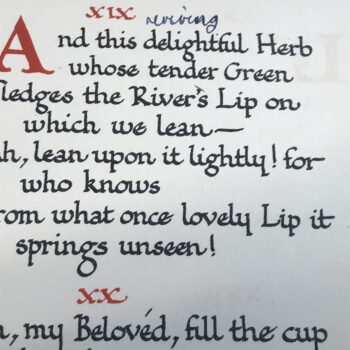 XIX reviving
And this delightful Herb
whose tender Green
ledges the River's Lip on
which we lean—
h, lean upon it lightly! for
who knows
rom what once lovely Lip it
springs unseen!
XX
, my Belovéd, fill the cup